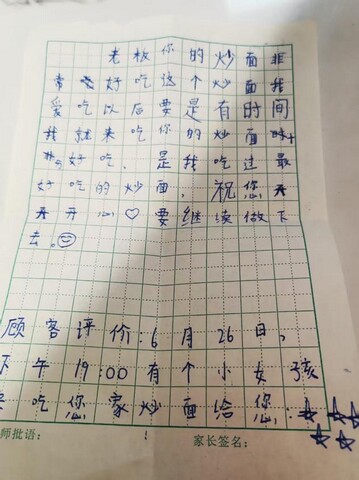 老板你的炒面非
常好吃这个炒面我
爱吃以后要是有时间
我就来吃你的炒面味
好吃，是我吃过最
好吃的炒面，祝您天
天开心♡要继续做下
去。☺
顾客评价:6月26日,
下午19:00有个小女孩
吃您家炒面给您:☆☆☆
☆☆
师批语: 家长签名: